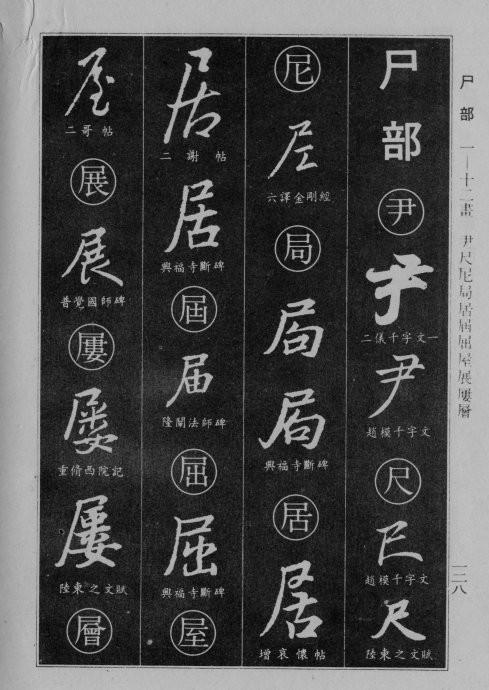 尸部 一—十二畫 尹尺尼局居屆屈屋展屢層
一二八
尸部
尹
尹
二儀千字文一
尹
趙模千字文
尺
尺
趙模千字文
尺
陸柬之文賦
尼
尼
六譯金剛經
局
局
局
興福寺斷碑
居
居
增哀懷帖
居
二謝帖
居
興福寺斷碑
屆
届
隆闡法師碑
屈
屈
興福寺斷碑
屋
屋
二哥帖
展
展
普覺國師碑
屢
屢
重脩西院記
屢
陸柬之文賦
層